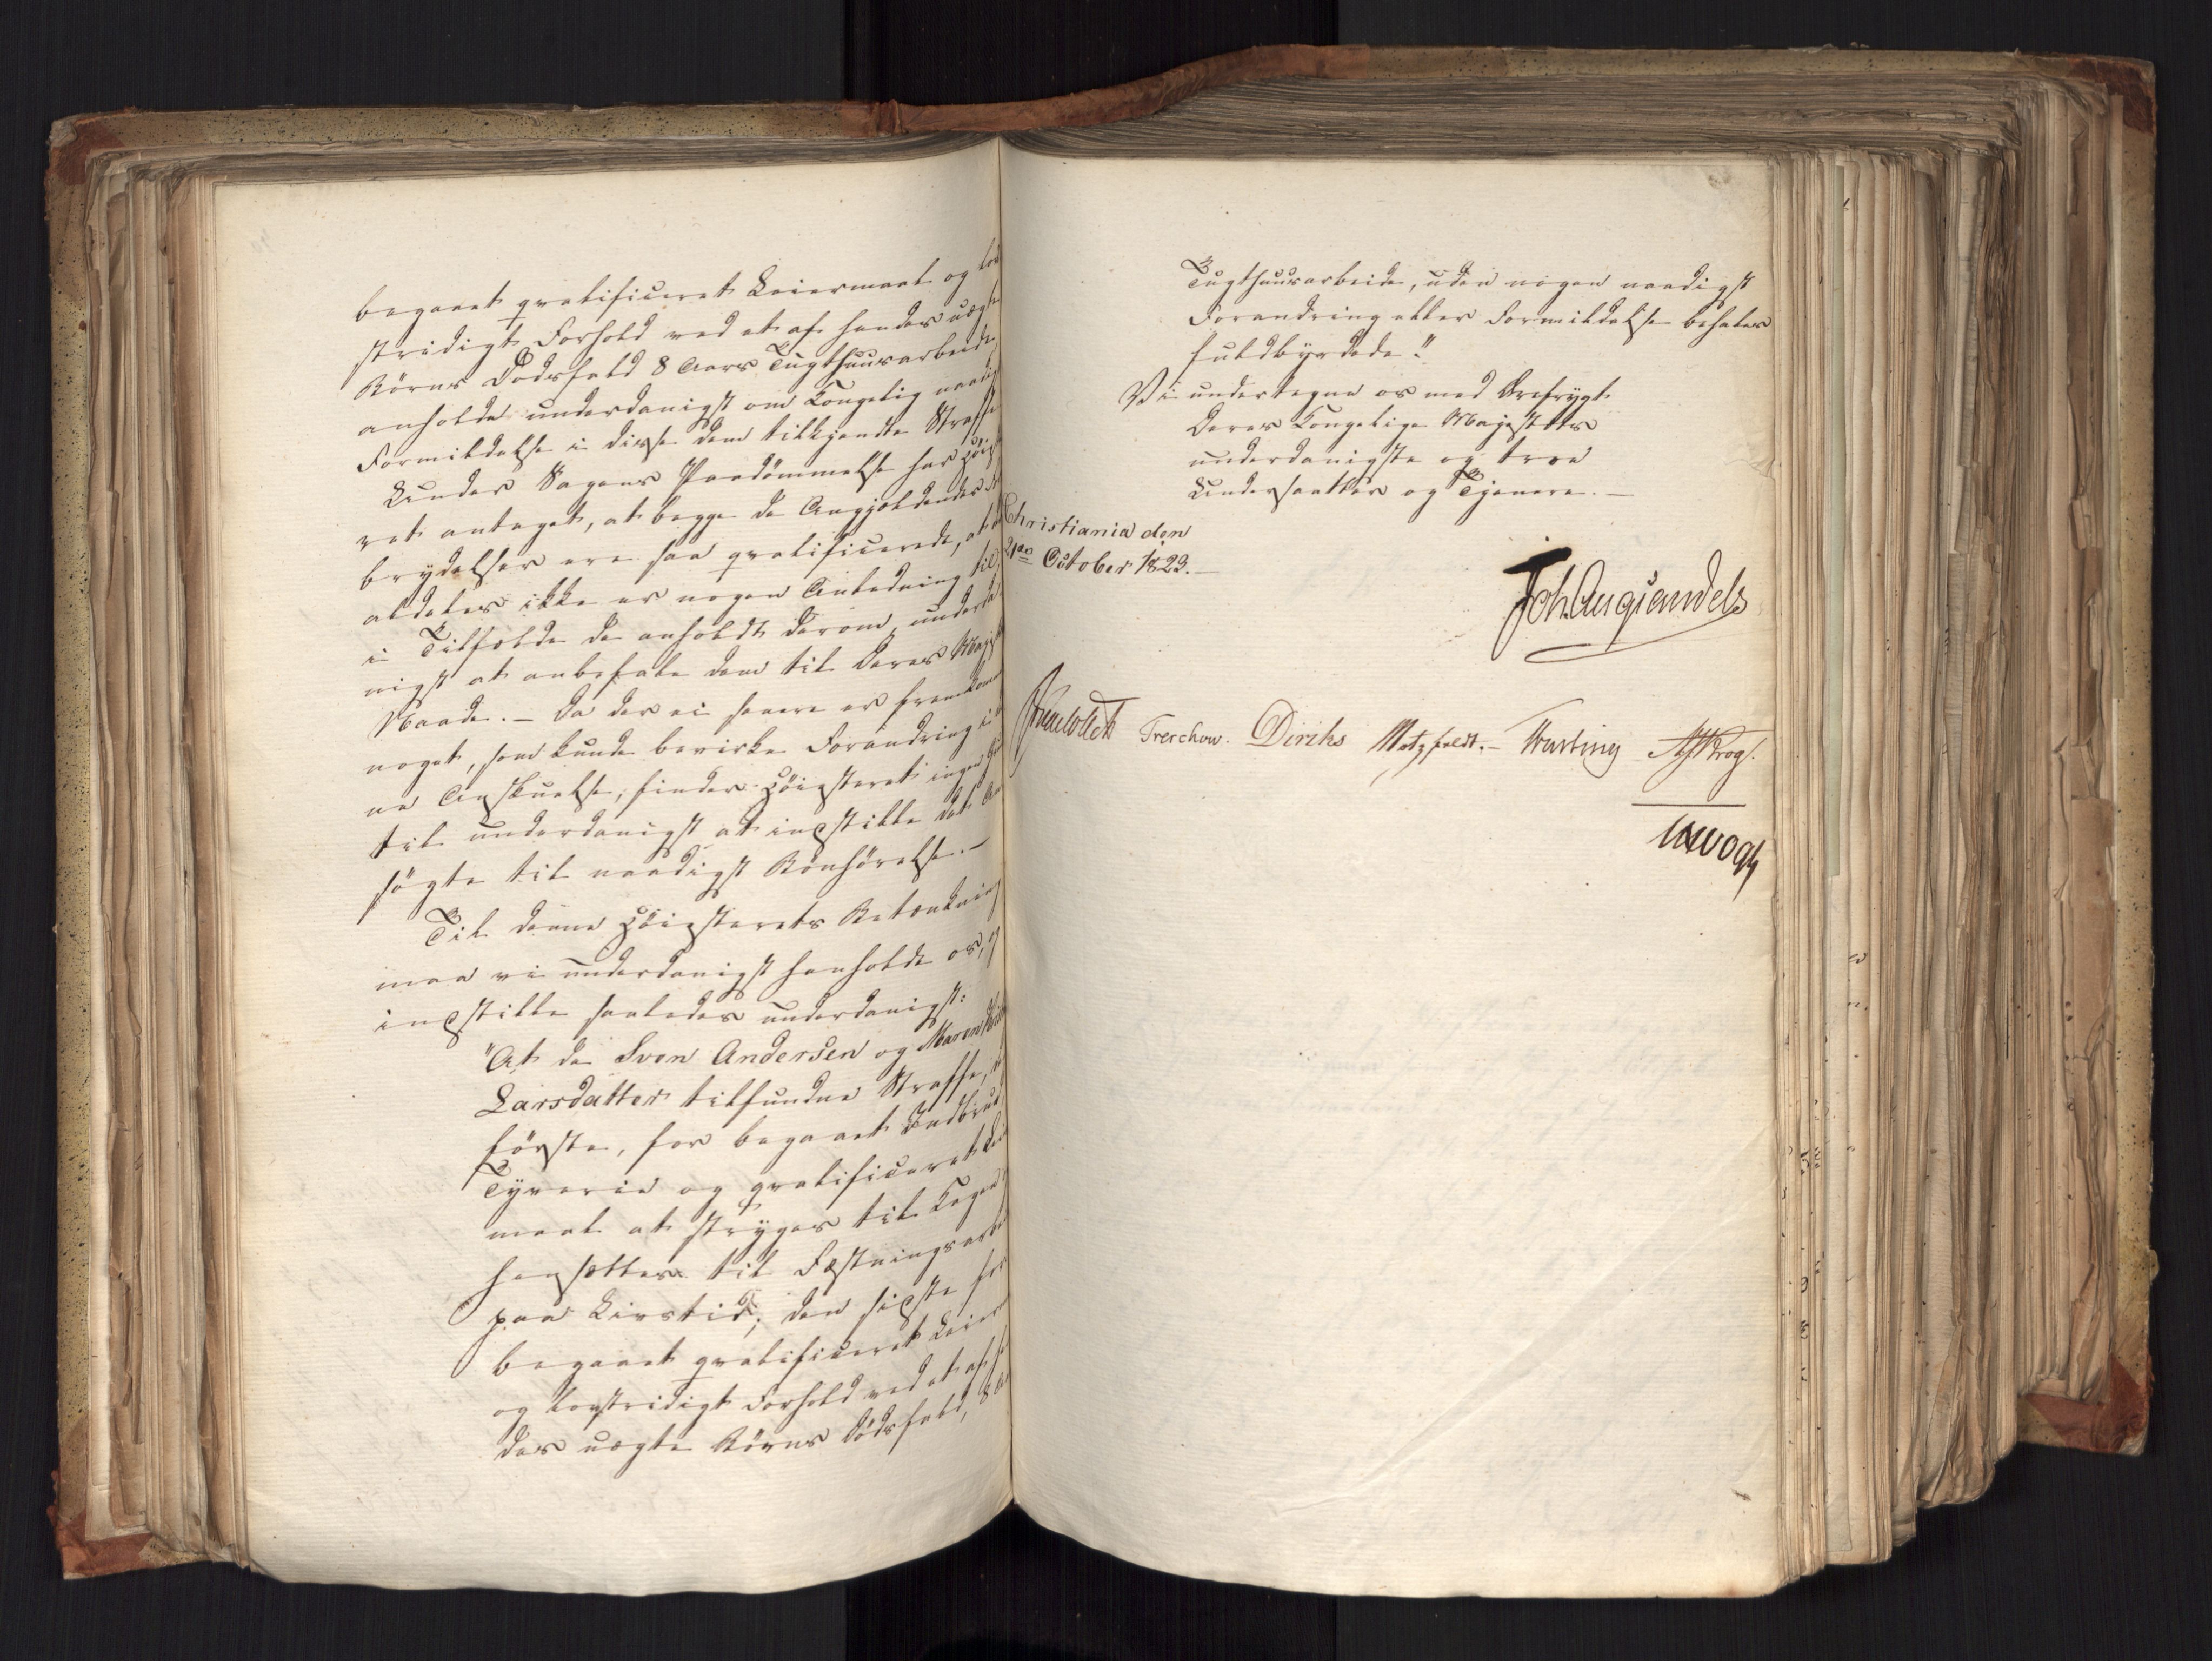 begaaet qvalificeret Leiermaal og lov
stridigt Forhold ved et af hendes uægte
Börns Dödsfald 8 Aars Tugthuusarbeide,
anholde underdanigst om Kongelig naadigst
Formildelse i disse dem tilkjendte Straffe.
Under Sagens Paadömmelse har Höieste
ret antaget, at begge de Angjældendes For
brydelser ere saa qvalificerede, at der
aldeles ikke er nogen Anledning til,
i Tilfælde de anholdt derom, underda
nigst at anbefale dem til Deres Majestæts
Naade. – Da der ei senere er fremkommet
noget, som kunde bevirke Forandring i den
ne Anskuelse, finder Höiesteret ingen
til underdanigst at indstille det An
søgte til naadigst Bönhörelse. –
Til denne Höiesterets Betænkning
maa vi underdanigst henholde os, og
indstille saaledes underdanigst:
"At de Sven Andersen og Maren
Larsdatter tilfundne Straffe,
förste, for begaaet Indbruds
Tyverie og qvalificeret Leier
maal at stryges til Kagen
hensættes til Fæstningsarbeide
paa Livstid; den sidste for
begaaet qvalificeret Leiermaal
og lovstridigt Forhold ved et af hen
des uægte Börns Dödsfald, 8 Aars
Tugthuusarbeide, uden nogen naadigst
Forandring eller Formildelse befales
fuldbyrdede."
Vi undertegne os med Ærefrygt
Deres Kongelige Majestæts
underdanigste og troe
Undersaatter og Tjenere. –
Christiania den
21de October 1823. –
Joh. Aug Sandels
Treschow. Diriks Motzfeldt. – Fasting Krog.